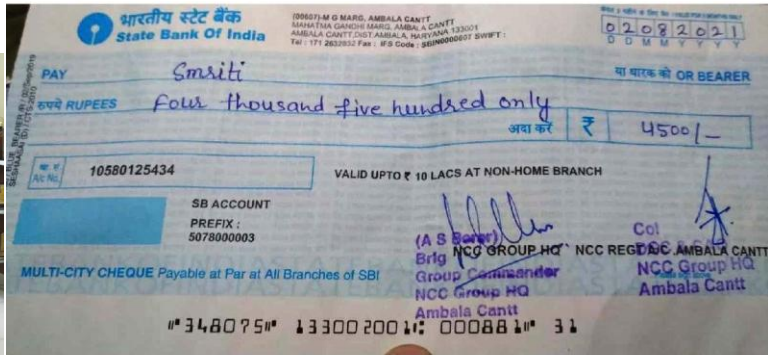 भारतीय स्टेट बैंक
State Bank Of India
(00607)-M G MARG, AMBALA CANTT
MAHATMA GANDHI MARG, AMBALA CANTT
AMBALA CANTT,DIST:AMBALA, HARYANA 133001
Tel : 171 2632832 Fax : IFS Code : SBIN0000607 SWIFT :
VALID FOR 3 MONTHS ONLY
02082021
D D M M Y Y Y Y
PAY Smriti या धारक को OR BEARER
रुपये RUPEES Four thousand five hundred only
अदा करें ₹ 4500/-
A/c No. 10580125434
VALID UPTO ₹ 10 LACS AT NON-HOME BRANCH
SB ACCOUNT
PREFIX :
5078000003
MULTI-CITY CHEQUE Payable at Par at All Branches of SBI
NCC GROUP HQ NCC REGD A/C AMBALA CANTT
(A S
Brig
Group Commander
NCC Group HQ
Ambala Cantt
Col
NCC Group HQ
Ambala Cantt
⑈348075⑈ 133002001⑆ 000881⑈ 31